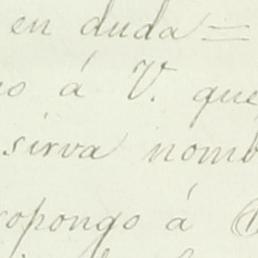 en duda =
á V. que
sirva nomb
ropongo á